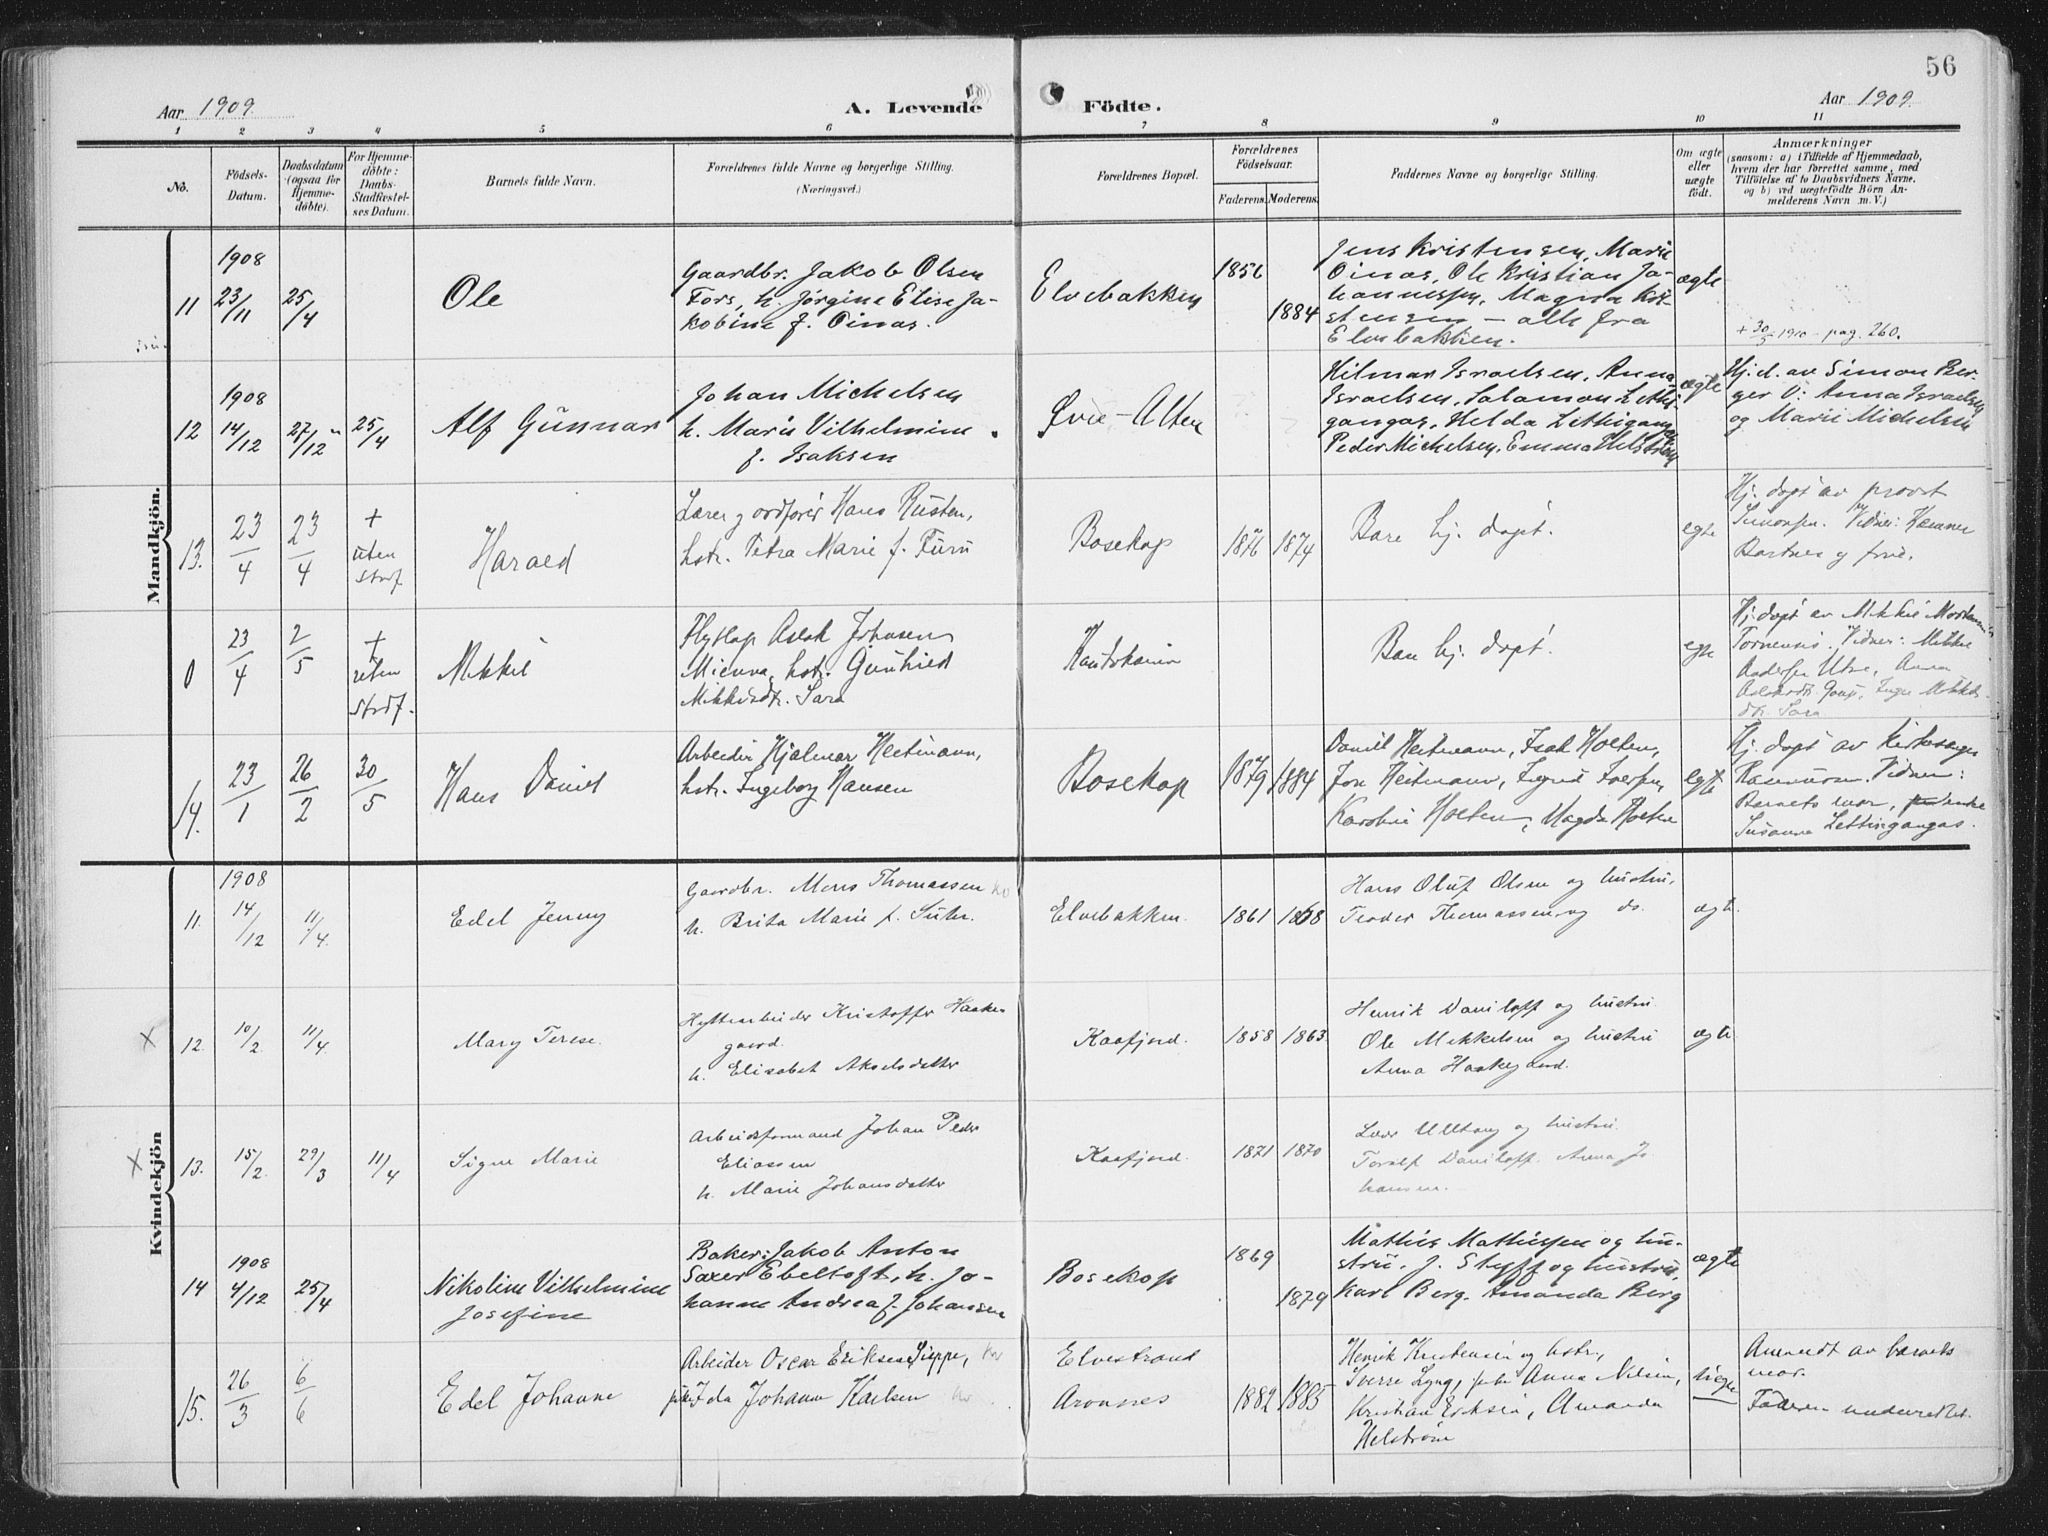 56
Aar 1909.
A. Levende Födte.
Aar 1909.
1 2 3 4 5 6 7 8 9 10 11
No.
Födsels-
Datum.
Daabsdatum
(ogsaa for
Hjemme-
döbte).
For Hjemme-
döbte:
Daabs-
Stadfæstel-
ses Datum.
Barnets fulde Navn.
Forældrenes fulde Navne og borgerlige Stilling.
(Næringsvei.)
Forældrenes Bopæl.
Forældrenes
Födselsaar.
Faderens. Moderens.
Faddernes Navne og borgerlige Stilling.
Om ægte
eller
uægte
födt.
Anmærkninger
(saasom: a) i Tilfælde af Hjemmedaab,
hvem der har forrettet samme, med
Tilföielse af to Daabsvidners Navne,
og b) ved uegtefödte Börn An-
melderens Navn m. V.)
Mandkjön.
11
1908
23/11
25/4
Ole
Gaardbr. Jakob Olsen
Fors, h. Jørgine Elise Ja-
kobine f. Oinas.
Elvebakken
1856
1884
Jens Kristensen, Marie
Oinas, Ole Kristian Jo-
hannessen, Magna Kri-
stensen – alle fra
Elvebakken.
ægte
+ 30/5 1910 - pag. 260.
12
1908
14/12
27/12
25/4
Alf Gunnar
Johan Michelsen
h. Marie Vilhelmine
f. Isaksen
Øvre-Alten
Hilmar Israelsen, Anna
Israelsen, Salamon Letti-
gangas, Helda Lettigangas
Peder Michelsen, Emma Helstrøm
ægte
Hj. d. av Simon Ber-
ger V: Anna Israelsen
og Marie Michelsen
13.
23/4
23/4
+
uten
stadf.
Harald
Lærer og ordfører Hans Rusten,
hstr. Petra Marie f. Furu
Bosekop
1876
1874
Bare hj. døpt.
egte
Hj. døpt av provst
Simonsen. Vidner: Kæmner
Bastnes og frue.
0
23/4
2/5
+
uten
stadf.
Mikkel
Flytlap Aslak Johnsen
Mienna, hstr. Gunhild
Mikkelsdtr. Sara
Kautokeino
Bare hj. døpt.
egte
Hj. døpt av Mikkel Mortensen
Tornensis. Vidner: Mikkel
Andersen Utse, Anna
Aslaksdt. Gaup, Inger Mikkels-
dtr. Sara
14.
23/1
26/2
30/5
Hans Daniel
Arbeider Hjalmar Heitmann,
hstr. Ingeborg Hansen
Bosekop
1879
1884
Daniel Heitmann, Isak Holten,
Jon Heitmann, Ingrid Iversen,
Karoline Holten, Magda Holten
egte
Hj. døpt av Kirkesanger
Rasmussen. Vidner:
Barnets mor, enke
Susanna Lettingangas.
Kvindekjön
11.
1908
14/12
11/4
Edel Jenny
Gaardbr. Mons Thomassen kv
h. Brita Marie f. Suhr.
Elvebakken.
1861
1868
Hans Oluf Olsen og hustru,
Teodor Thomassen og do.
ægt.
12.
10/2.
11/4.
Mary Terese.
Hyttearbeider Kristoffer Haake-
gaard.
h. Elisabet Akselsdatter
Kaafjord.
1858
1863
Henrik Daniloff og hustru
Ole Mikkelsen og hustru
Anna Haakegaard.
ægte
13.
15/2.
29/3
11/4
Signe Marie
Arbeidsformand Johan Peder
Eliassen
h. Marie Johansdatter
Kaafjord.
1871
1870
Lærer Ulltang og hustru.
Toralf Daniloff. Anna Jo
hansen.
14
1908
4/12
25/4
Nikoline Vilhelmine
Josefine
Baker: Jakob Anton
Saxer Ebeltoft, h. Jo-
hanne Andrea f. Johansen
Bosekop
1869
1879
Mathis Mathissen og hu-
stru, J. Styff og hustru,
Karl Berg. Amanda Berg
ægte
15.
26/3
6/6
Edel Johanne
Arbeider Oscar Eriksen Sieppe, kv
pike Ida Johanne Karlsen kv
Elvestrand
Aronnes
1882
1885
Henrik Kristensen og hstr.,
Sverre Lyng, pike Anna Nilsen,
Kristian Eriksen, Amanda
Helstrøm
uegte
Anmeldt av barnets
mor.
Faderen underrettet.